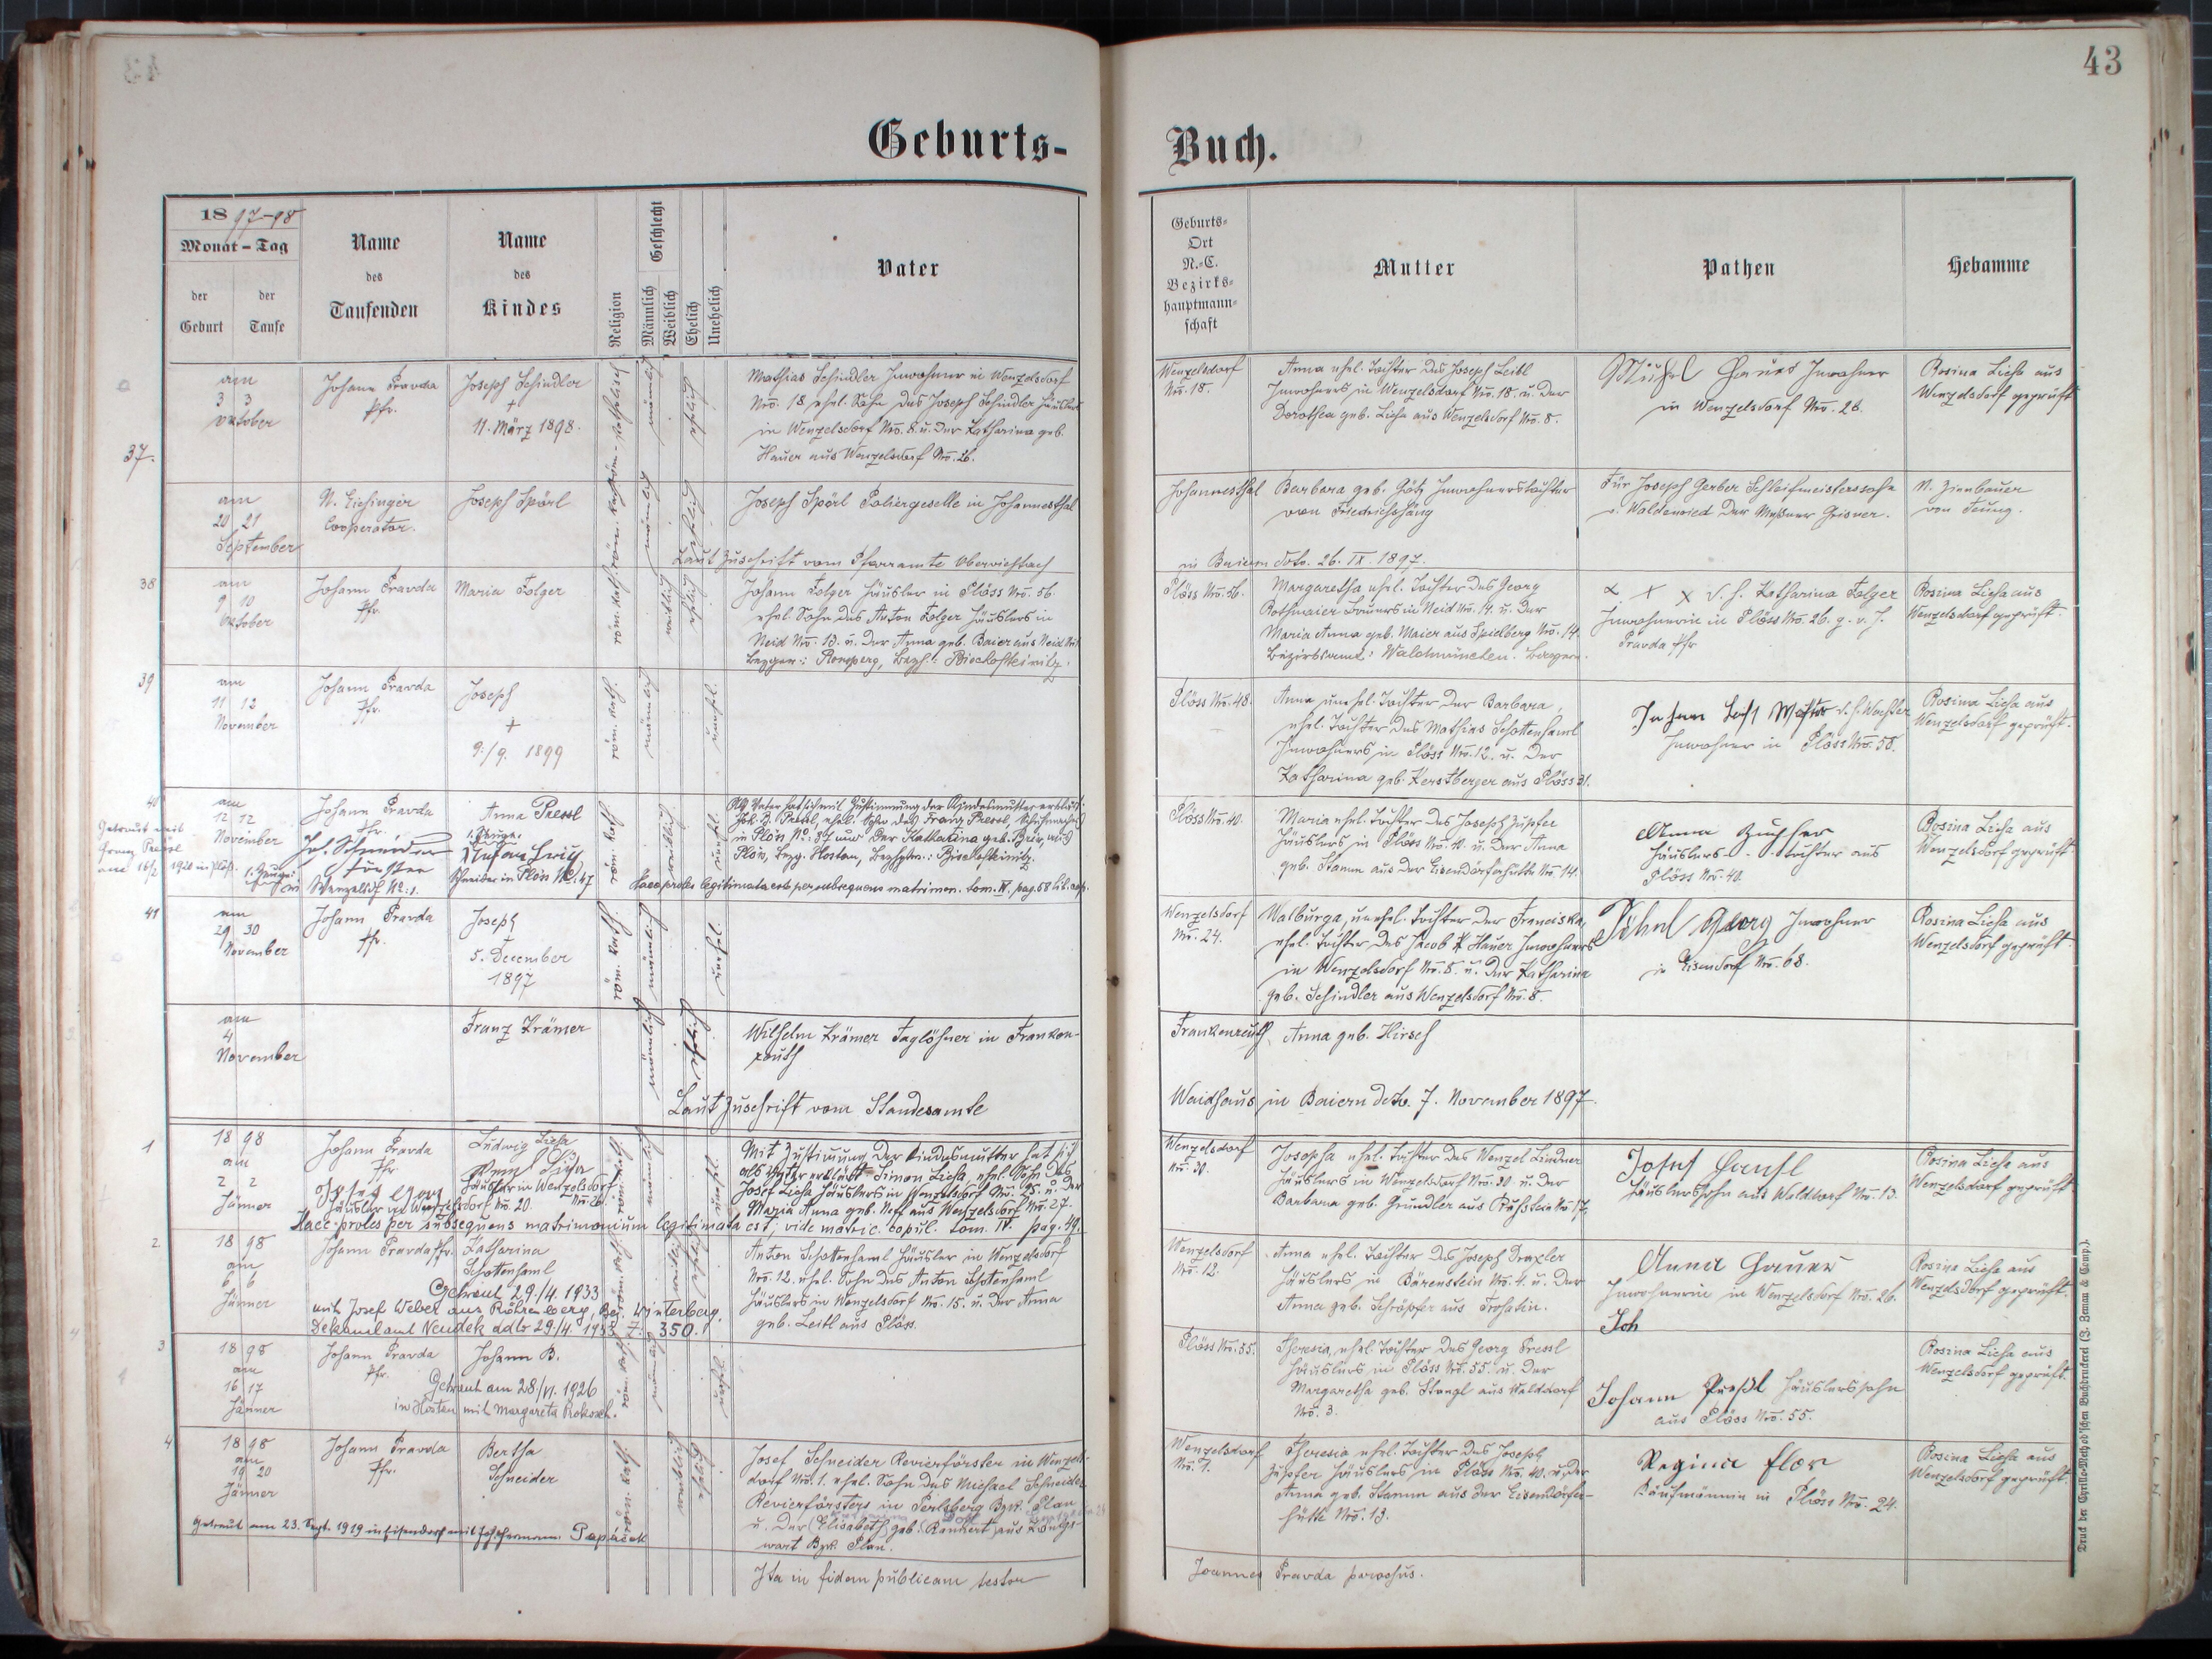 43
Geburts-
Buch.
18 97-98
Monat - Tag
der Geburt
der Taufe
Name
des
Taufenden
Name
des
Kindes
Religion
Geschlecht
Männlich
Weiblich
Ehelich
Unehelich
Vater
Geburts-
Ort
N.-C.
Bezirks-
hauptmann-
schaft
Mutter
Pathen
Hebamme
37.
am
3 3
Oktober
Johann Pravda
Pfr.
Joseph Schindler
†
11. März 1898.
röm.-katholisch
männlich
ehelich
Mathias Schindler Inwohner in Wenzelsdorf
Nro. 18 ehel. Sohn des Joseph Schindler Häuslers
in Wenzelsdorf Nro. 8. u. der Katharina geb.
Hauer aus Wenzelsdorf Nro. 26.
Wenzelsdorf
Nro. 18.
Anna ehel. Tochter des Joseph Leibl
Inwohners in Wenzelsdorf Nro. 18. u. der
Dorothea geb. Lieha aus Wenzelsdorf Nro. 8.
Inwohner
in Wenzelsdorf Nro. 26.
Rosina Lieha aus
Wenzelsdorf geprüft
am
20 21
September
Cooperator.
Joseph Spörl
männlich
ehelich
Joseph Spörl Poliergeselle in Johannesthal
Laut Zuschrift vom Pfarramte Oberviechtach
Johannesthal
Barbara geb. Götz Inwohnerstochter
von Friedrichshäng
in Baiern dto. 26. IX. 1897.
Für Joseph Gerber Schleifmeisterssohn
v. Waldenried der Meßner Grisner.
von Teunz.
38
am
9 10
Oktober
Johann Pravda
Pfr.
Maria Folger
röm. kath.
weiblich
ehelich
Johann Folger Häusler in Plöss Nro. 56
ehel. Sohn des Anton Folger Häuslers in
Neid Nro. 13. u. der Anna geb. Baier aus Neid
Ronsperg, Bezh: Bischofteinitz.
Plöss Nro. 56.
Margaretha ehel. Tochter des Georg
Rothmaier Bauers in Neid Nro. 14. u. der
Maria Anna geb. Maier aus Spielberg Nro. 14
Bezirksamt: Waldmünchen. Bayern.
x x x d. h. Katharina Folger
Inwohnerin in Plöss Nro. 26. g. v. J.
Pravda Pfr
Rosina Lieha aus
Wenzelsdorf geprüft.
39
am
11 12
November
Johann Pravda
Pfr.
Joseph
†
9./9. 1899
röm. kath.
männlich
unehel.
Plöss Nro. 48.
Anna unehel. Tochter der Barbara,
ehel. Tochter des Mathias Schottenhaml
Inwohners in Plöss Nro. 12. u. der
Katharina geb. Kerstberger aus Plöss 31.
Inwohner in Plöss Nro. 58.
Rosina Lieha aus
Wenzelsdorf geprüft.
40
am
12 12
November
Johann Pravda
Pfr.
Jos. Schneider
Förster
Wenzelsdf No: 1.
Anna Pressl
1. Zeuge:
Schneider in Plön No: 47
röm. kath.
weiblich
unehel.
Als Vater hat sich mit Zustimmung der Kindesmutter erklärt:
Joh. B. Pressl, ehel. Sohn des Franz Pressl, Schuhmachers
in Plön No: 37 und der Katharina geb. Bier, aus
Plön, Bzg. Hostau, Bezhptm.: Bischofteinitz.
Haec proles legitimata est per subsequens matrimon. tom. IV. pag. 58 lib. cop.
Plöss Nro. 40.
Maria ehel. Tochter des Joseph Zupfer
Häuslers in Plöss Nro. 40. u. der Anna
geb. Stamm aus der Eisendorferhütte Nro. 14.
Anna Zupfer
Häuslerstochter aus
Plöss Nro. 40.
Rosina Lieha aus
Wenzelsdorf geprüft.
41
am
29 30
November
Johann Pravda
Pfr.
Joseph
5. December
1897
röm. kath.
männlich
unehel.
Wenzelsdorf
Nro. 24.
Walburga, unehel. Tochter der Franciska,
ehel. Tochter des Jacob Hauer Inwohners
in Wenzelsdorf Nro. 8. u. der Katharina
geb. Schindler aus Wenzelsdorf Nro. 8.
Georg Inwohner
in Eisendorf Nro. 68.
Rosina Lieha aus
Wenzelsdorf geprüft.
am
4
November
Franz Krämer
männlich
ehelich
Wilhelm Krämer Taglöhner in Franken-
reuth
Laut Zuschrift vom Standesamte
Frankenreuth
Anna geb. Hirsch
Waidhaus in Baiern dto. 7. November 1897.
1
18 98
am
2 2
Jänner
Johann Pravda
Pfr
Häusler in Wenzelsdorf No. 20.
Ludwig Lieha
Häusler in Wenzelsdorf
röm. kath.
männlich
unehl.
Mit Zustimmung der Kindesmutter hat sich
als Vater erklärt Simon Lieha, ehel. Sohn des
Josef Lieha Häuslers in Wenzelsdorf Nro. 25. u. der
Maria Anna geb. Neft aus Wenzelsdorf Nro. 27.
Haec proles per subsequens matrimonium legitimata est; vide matric. copul. tom. IV. pag. 49.
Wenzelsdorf
Nro. 20.
Josepha ehel. Tochter des Wenzel Lindner
Häuslers in Wenzelsdorf Nro. 20. u. der
Barbara geb. Gründler aus Ruhstein No. 17,
Häuslerssohn aus Walddorf Nro. 13.
Rosina Lieha aus
Wenzelsdorf geprüft
2.
18 98
am
6 6
Jänner
Johann Pravda Pfr.
Katharina
Schottenhaml
Getraut 29./4. 1933
mit Josef Weber aus Röhrenberg, Bez. Winterberg.
Dekanalamt Neudek ddto 29./4. 1933 Z. 350.
röm. kath.
weiblich
ehelich
Anton Schottenhaml Häusler in Wenzelsdorf
Nro. 12. ehel. Sohn des Anton Schottenhaml
Häuslers in Wenzelsdorf Nro. 15. u. der Anna
geb. Leitl aus Plöss.
Wenzelsdorf
Nro. 12.
Anna ehel. Tochter des Joseph Drexler
Häuslers in Bärenstein Nro. 4. u. der
Anna geb. Schröpfer aus Trohatin.
Anna Hauer
Inwohnerin in Wenzelsdorf Nro. 26.
Joh
Rosina Lieha aus
Wenzelsdorf geprüft.
3
18 98
am
16 17
Jänner
Johann Pravda
Pfr.
Johann B.
Getraut am 28./VI. 1926
in Hostau mit Margareta Rokosch.
röm. kath.
männlich
unehel.
Plöss Nro. 55.
Theresia, ehel. Tochter des Georg Pressl
Häuslers in Plöss Nro. 55. u. der
Margaretha geb. Stangl aus Walddorf
Nro. 3.
Johann Preßl Häuslerssohn
aus Plöss Nro. 55.
Rosina Lieha aus
Wenzelsdorf geprüft.
4
18 98
am
19 20
Jänner
Johann Pravda
Pfr.
Bertha
Schneider
röm. kath.
weiblich
ehelich
Getraut am 23. Sept. 1919 in Eisendorf mit Joh. Hermann Papacek
Josef Schneider Revierförster in Wenzels-
dorf Nro. 1. ehel. Sohn des Michael Schneider
Revierförsters in Perlsberg Bzk. Plan
u. der (Elisabeth) geb. (Rankert) aus Königs-
wart Bzk. Plan.
Wenzelsdorf
Nro. 1.
Theresia ehel. Tochter des Joseph
Zupfer Häuslers in Plöss Nro. 40. u. der
Anna geb. Stamm aus der Eisendorfer-
hütte Nro. 13.
Regina Flor
Kaufmännin in Plöss Nro. 24.
Rosina Lieha aus
Wenzelsdorf geprüft.
Ita in fidem publicam testor
Joannes Pravda parochus.
Druck der Cyrillo-Method'schen Buchdruckerei (J. Zeman & Comp.).